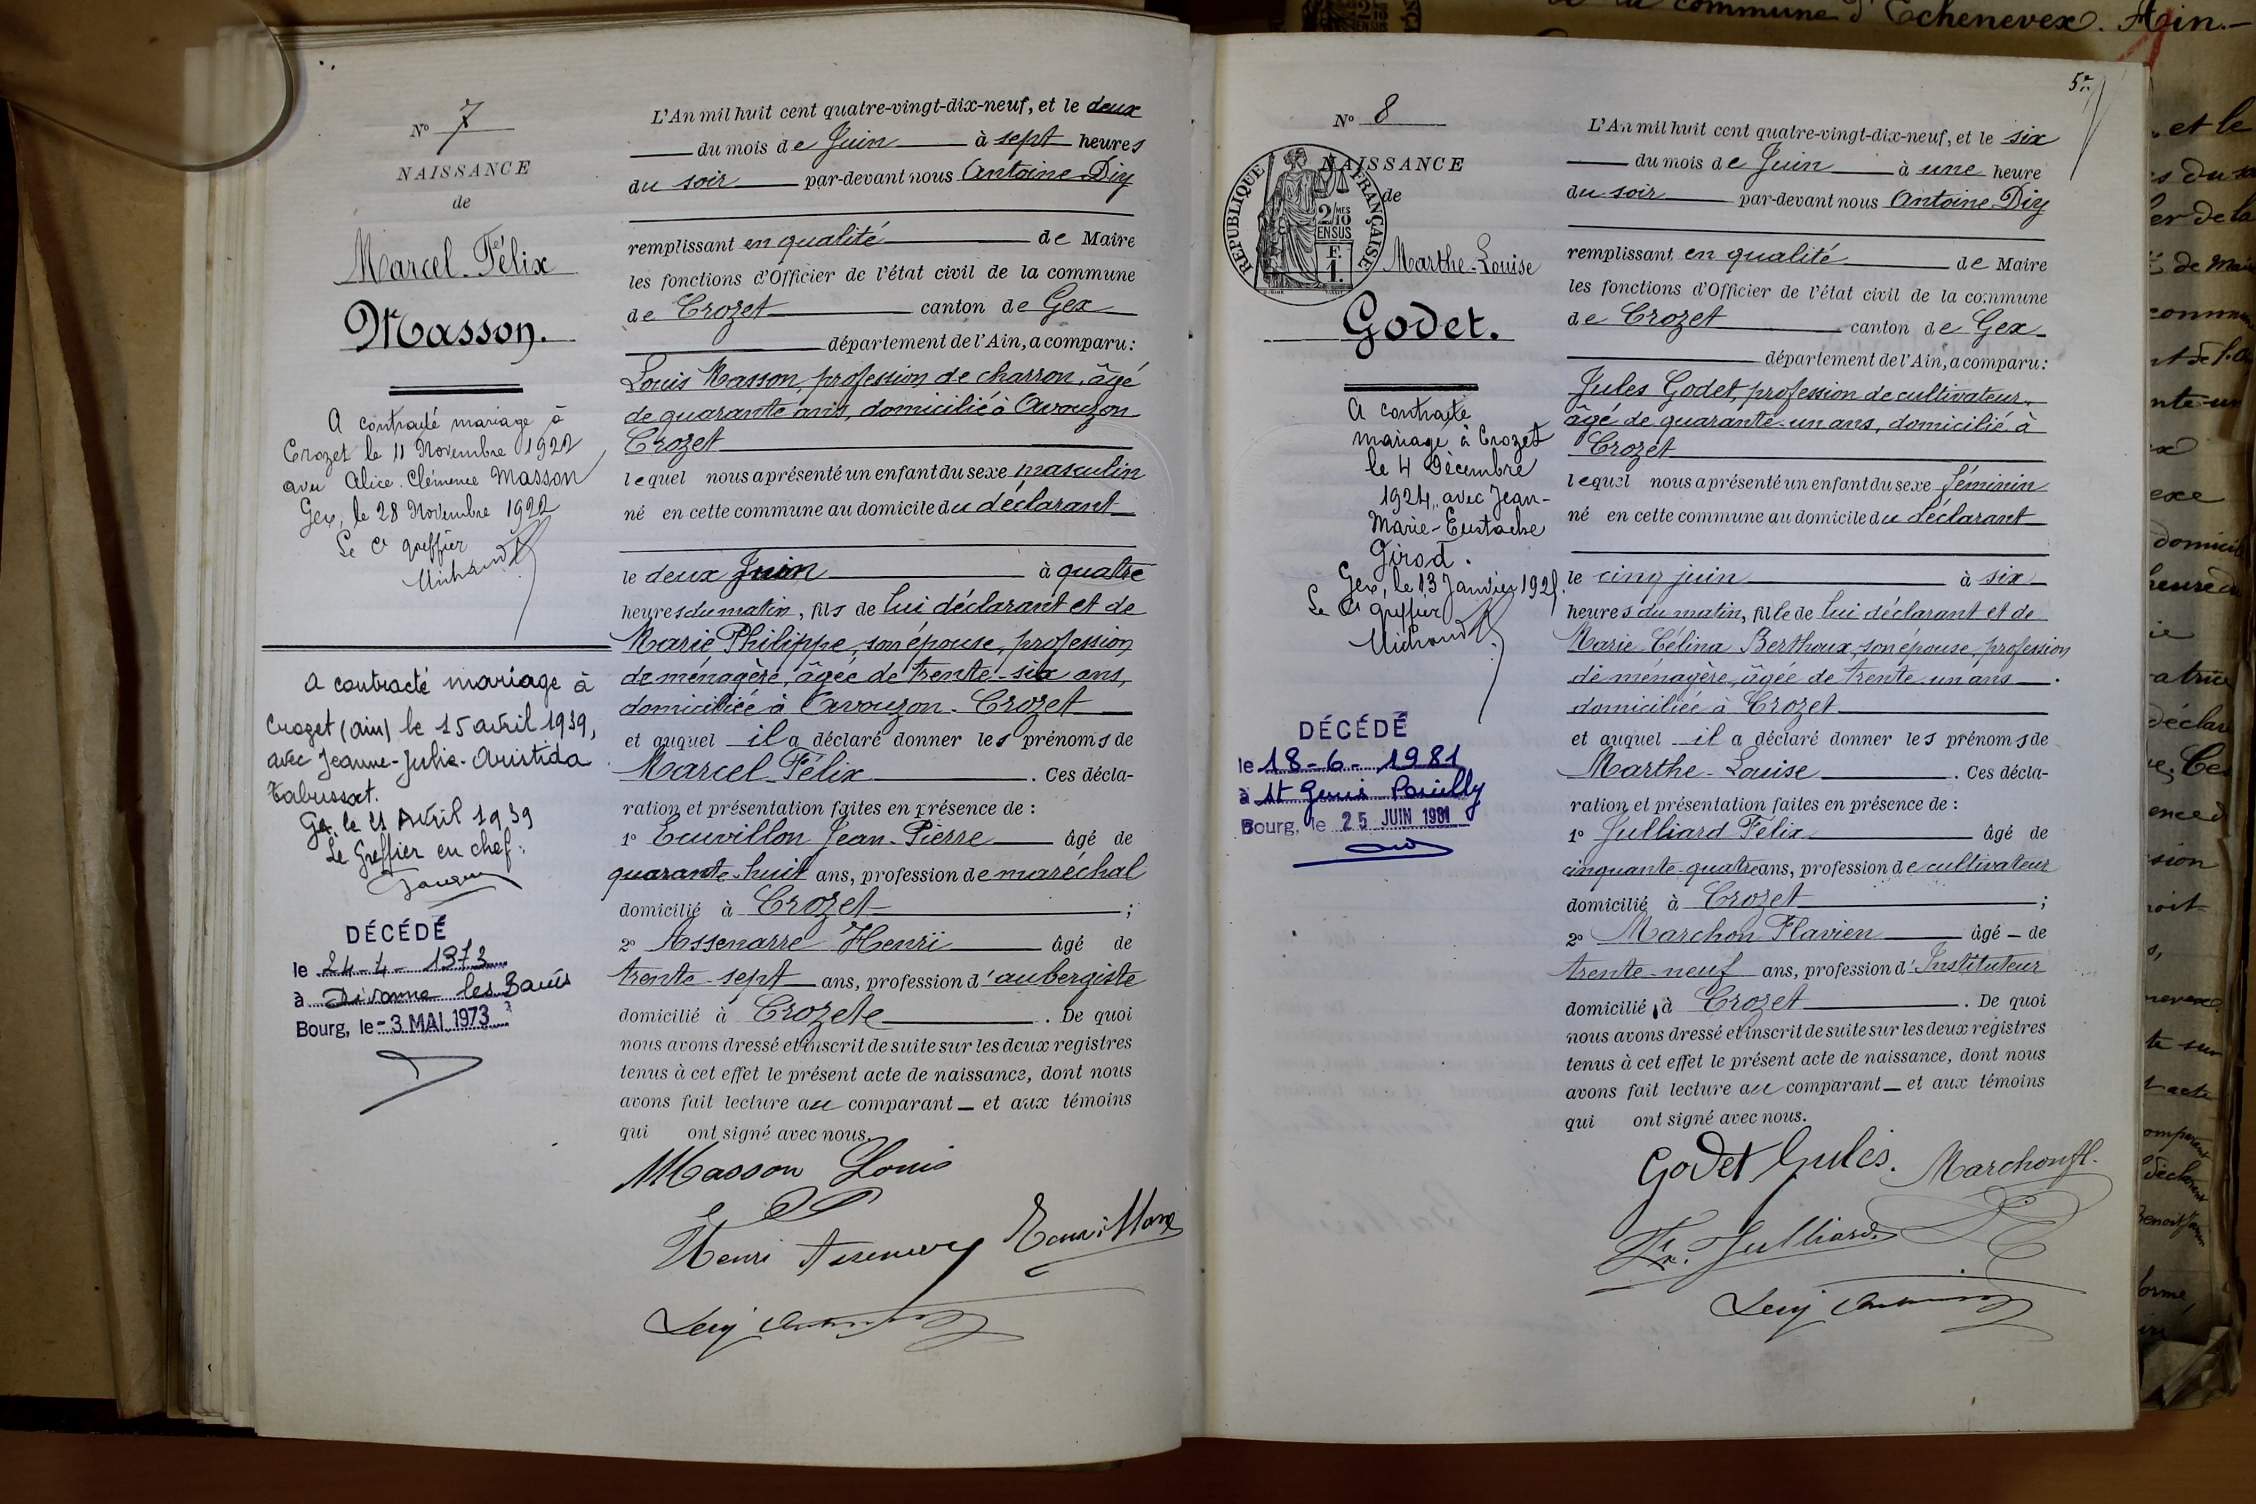 N° 7
NAISSANCE
de
Marcel-Félix
Masson.
A contracté mariage à
Crozet le 11 Novembre 1922
avec Alice Clémence Masson
Gex, le 28 Novembre 1922
Le Cis greffier
Michaud
a contracté mariage à
Crozet (ain) le 15 avril 1939,
avec Jeanne-Julie-Aristida
Tabussat.
Gex le 21 Avril 1939
Le Greffier en chef:
DÉCÉDÉ
le 24-4-1973
à Divonne les Bains
Bourg, le -3 MAI 1973
L'An mil huit cent quatre-vingt-dix-neuf, et le deux
du mois de Juin à sept heures
du soir par-devant nous Antoine Diy
remplissant en qualité de Maire
les fonctions d'Officier de l'état civil de la commune
de Crozet canton de Gex
département de l'Ain, a comparu:
Louis Masson, profession de charron, âgé
de quarante ans, domicilié à Avouzon
Crozet
lequel nous a présenté un enfant du sexe masculin
né en cette commune au domicile du déclarant
le deux Juin à quatre
heures du matin, fils de lui déclarant et de
Marie Philippe, son épouse, profession
de ménagère, âgée de trente-six ans,
domiciliée à Avouzon-Crozet
et auquel il a déclaré donner les prénoms de
Marcel Félix. Ces décla-
ration et présentation faites en présence de :
1° Jean-Pierre âgé de
quarante-huit ans, profession de maréchal
domicilié à Crozet ;
2° Assenarre Henri âgé de
trente-sept ans, profession d'aubergiste
domicilié à Crozete. De quoi
nous avons dressé et inscrit de suite sur les deux registres
tenus à cet effet le présent acte de naissance, dont nous
avons fait lecture au comparant et aux témoins
qui ont signé avec nous.
Masson Louis
Henri
N° 8
NAISSANCE
de
REPUBLIQUE FRANÇAISE
2/10 MES
EN SUS
F.
1.
Marthe-Louise
Godet.
A contracté
mariage à Crozet
le 4 Décembre
1924, avec Jean-
Marie-Eustache
Girod.
Gex, le 13 Janvier 1925.
Le Cis greffier
Michaud
DÉCÉDÉ
le 18-6-1981
à St Genis Pouilly
Bourg, le 25 JUIN 1981
5e
L'An mil huit cent quatre-vingt-dix-neuf, et le six
du mois de Juin à une heure
du soir par-devant nous Antoine Diy
remplissant en qualité de Maire
les fonctions d'Officier de l'état civil de la commune
de Crozet canton de Gex
département de l'Ain, a comparu:
Jules Godet, profession de cultivateur,
âgé de quarante-un ans, domicilié à
Crozet
lequel nous a présenté un enfant du sexe féminin
né en cette commune au domicile du déclarant
le cinq juin à six
heures du matin, fille de lui déclarant et de
Marie Célina Berthoux, son épouse, profession
de ménagère, âgée de trente-un ans.
domiciliée à Crozet
et auquel il a déclaré donner les prénoms de
Marthe-Louise. Ces décla-
ration et présentation faites en présence de :
1° Julliard Félix âgé de
cinquante-quatre ans, profession de cultivateur
domicilié à Crozet ;
2° Marchon Flavien âgé de
trente-neuf ans, profession d'Instituteur
domicilié à Crozet. De quoi
nous avons dressé et inscrit de suite sur les deux registres
tenus à cet effet le présent acte de naissance, dont nous
avons fait lecture au comparant et aux témoins
qui ont signé avec nous.
Godet Jules. Marchon fl.
Fx. Julliard
de la commune d'Echenevex. Ain.-
et le